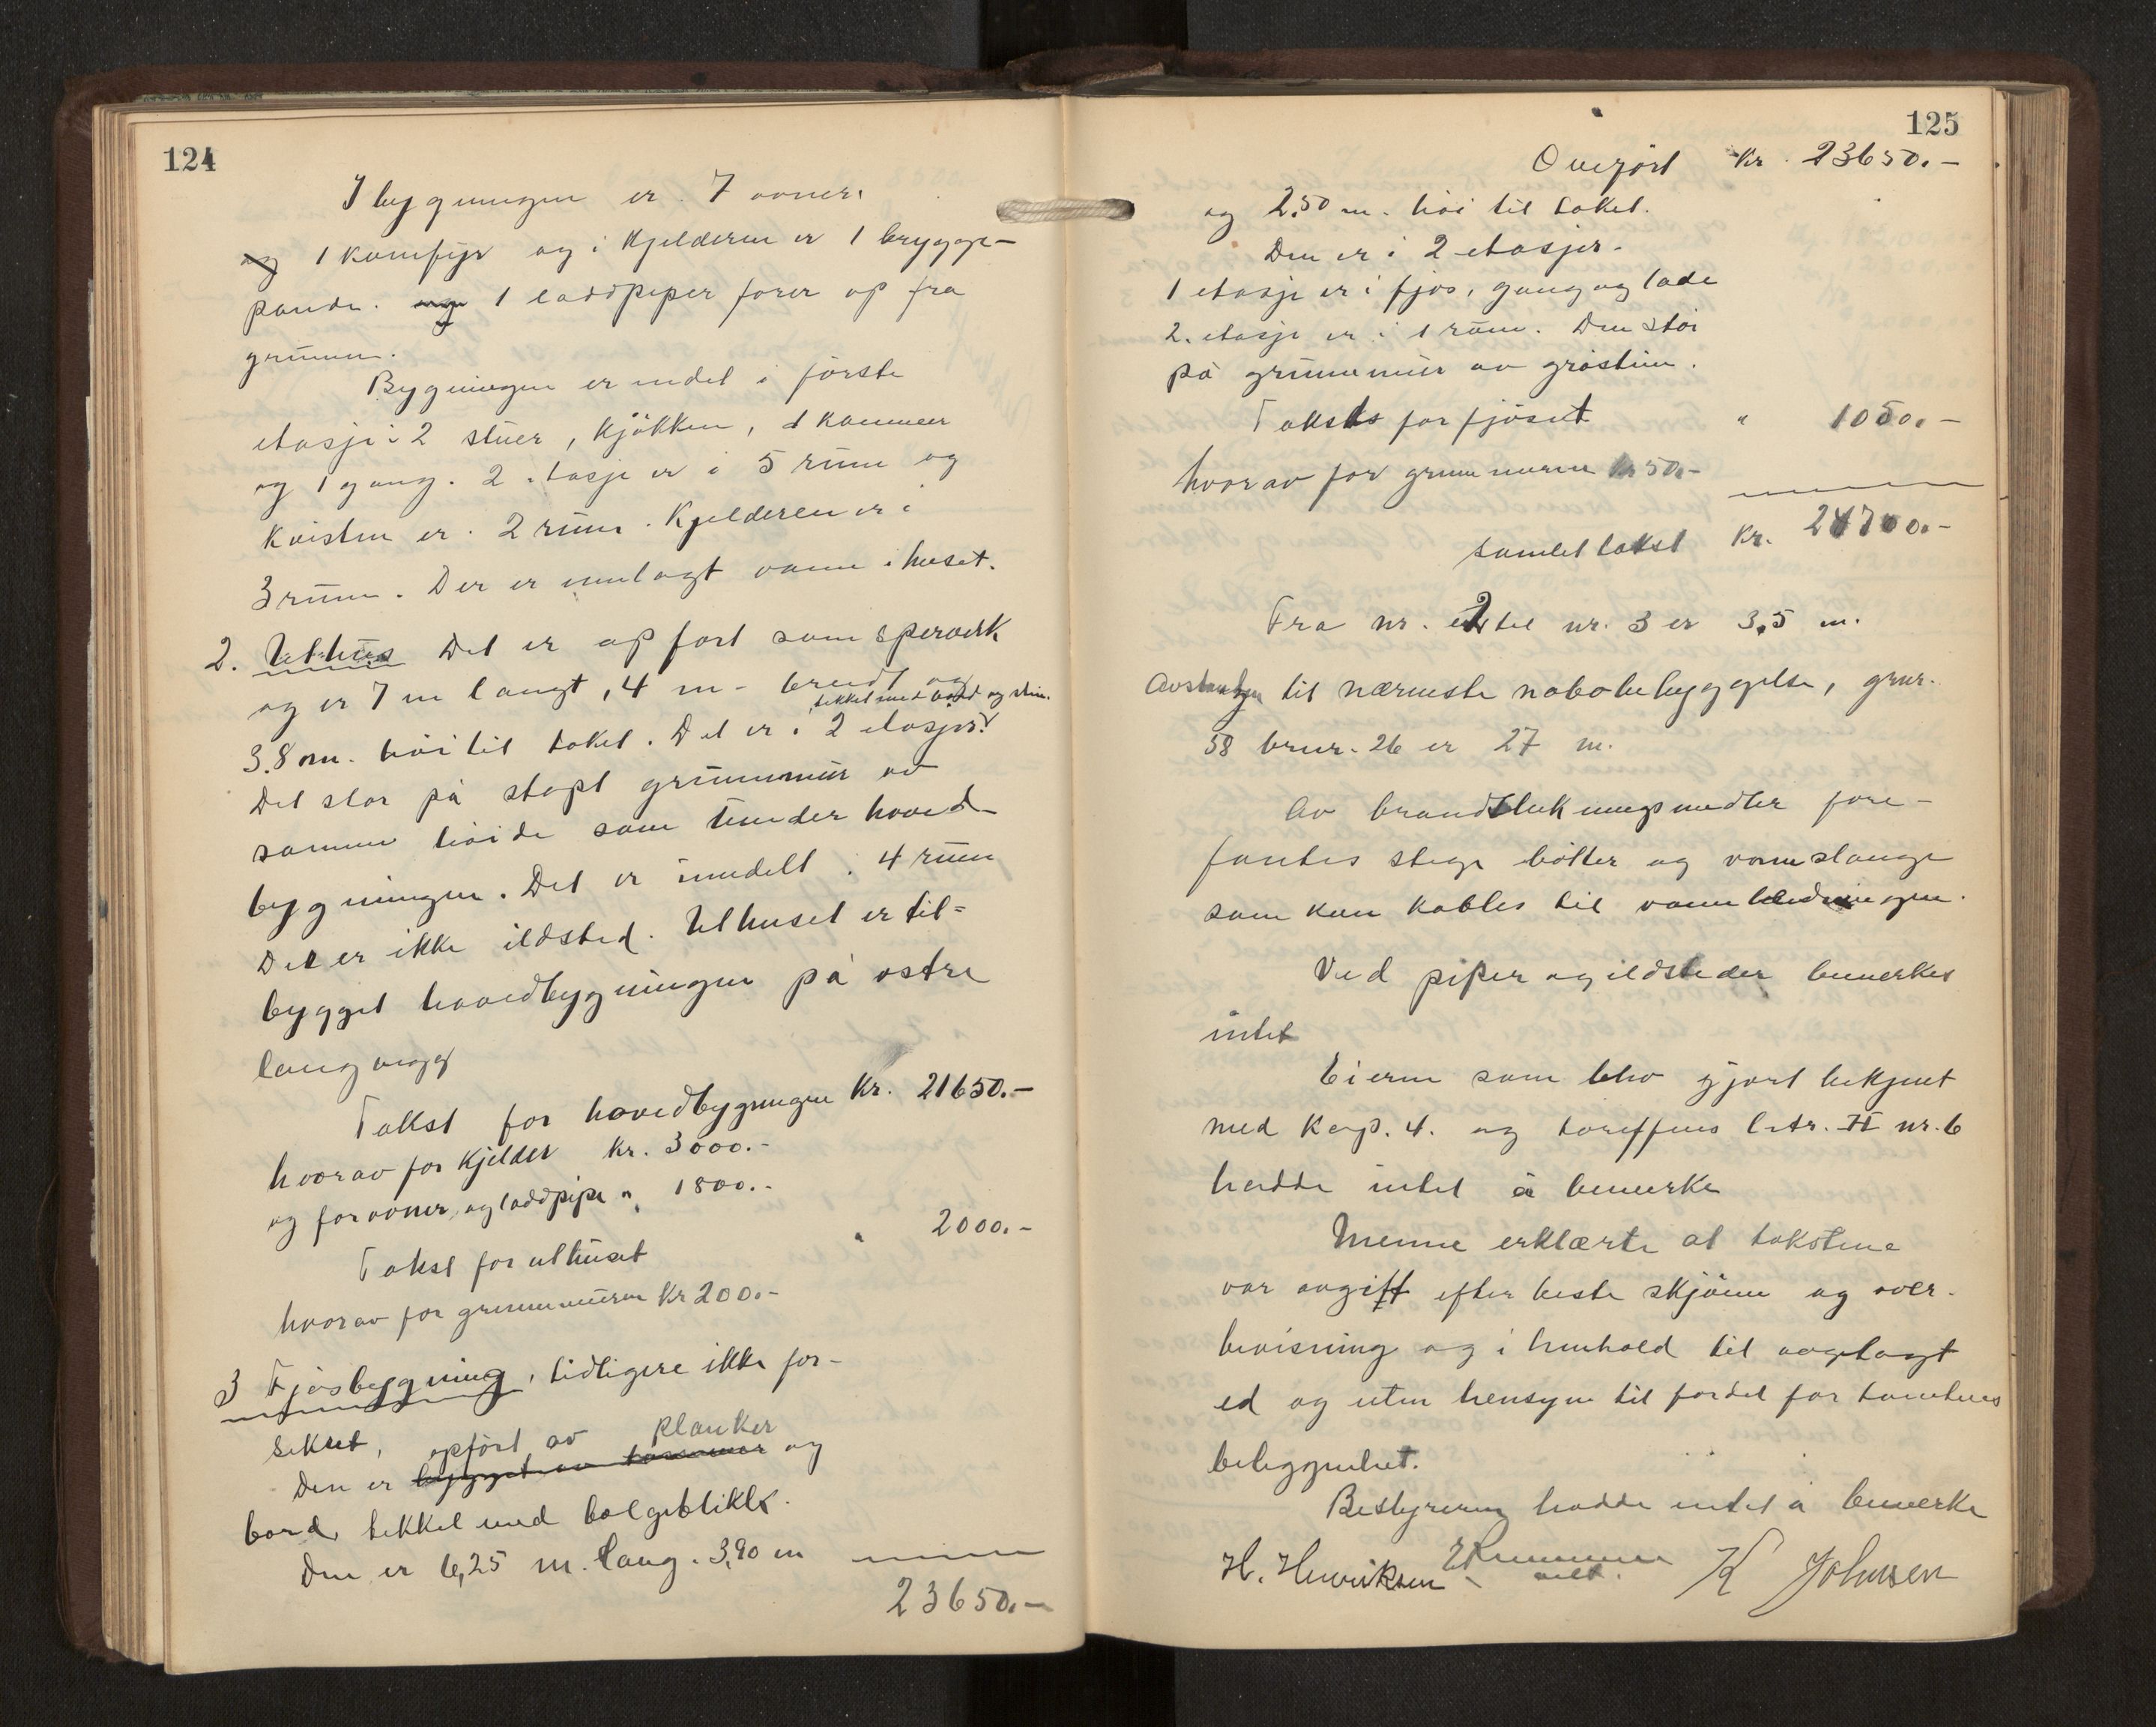 124
I bygningen er 7 ovner.
og 1 komfyr og i kjelderen er 1 brygge-
pande. og 1 loddpiper fører op fra
grunnen.
Bygningen er indel i förste
etasje i 2 stuer, kjökken, 1 kammer
og 1 gang. 2 etasje er i 5 rum og
kvisten er 2 rum. Kjelderen er i
3 rum. Der er innlagt vann i huset.
2. Uthus Det er opfört som sperverk
og er 7 m langt, 4 m. bredt og
tekket med bord og sten.
3.80m. höi til taket. Det er i 2 etasjer.
Det står på stöpt grunnmur av
samme höide som under hoved-
bygningen. Det er inndelt i 4 rum
Det er ikke ildsted. Uthuset er til-
bygget hovedbygningen på östre
langvegg
Takst for hovedbygningen Kr. 21650.-
hvorav for kjelder kr. 3000.-
og for ovner og loddpipe " 1800.-
Takst for uthuset " 2000.-
hvorav for grunnmuren kr 200.-
3 Fjösbygning, tidligere ikke for-
sikret, opfört av planker
Den er bygget av tömmer og
bord, tekket med bölgeblikk.
Den er 6,25 m. lang. 3,90 m
23650.-
125
Overfört kr. 23650.-
og 2.50 m. höi til taket.
Den er i 2 etasjer.
1 etasje er i fjös, gang og lade
2. etasje er i 1 rum. Den står
på grunnmur av gråsten.
Takst for fjöset " 1050.-
hvorav for grunnmuren kr 50.-
samlet takst kr. 24700.-
Fra nr. 2 til nr. 3 er 3,5 m.
Avstanden til nærmeste nabobebyggelse, gnr.
58 brnr. 26 er 27 m.
Av brandslukningsmidler fore-
fantes stige bötter og vannslange
som kan kobles til vannledningen.
Ved piper og ildsteder bemerkes
intet
Eieren som blev gjort bekjent
med kap. 4. og tariffens litr. H nr. 6
hadde intet å bemerke
Menne erklærte at takstene
var avgitt efter beste skjönn og over-
bevisning og i henhold til avlagt
ed og uten hensyn til fordel for tomtens
beliggenhet.
Bestyreren hadde intet å bemerke
H. Henriksen K Johnsen